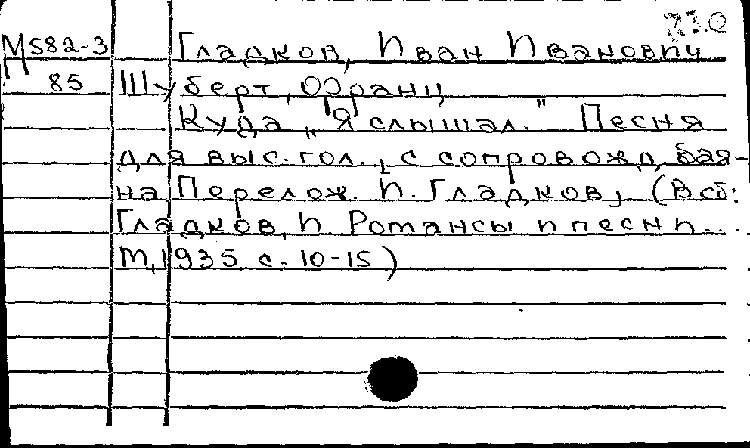 М582-3 Гладков, Иван Иванович
85 Шуберт, Франц
Куда „Я слышал." Песня
для выс. гол., с сопровожд. бая-
на Перелож. И. Гладков, (В сб:
Гладков, И. Романсы и песни...
М, 1935 с. 10-15)